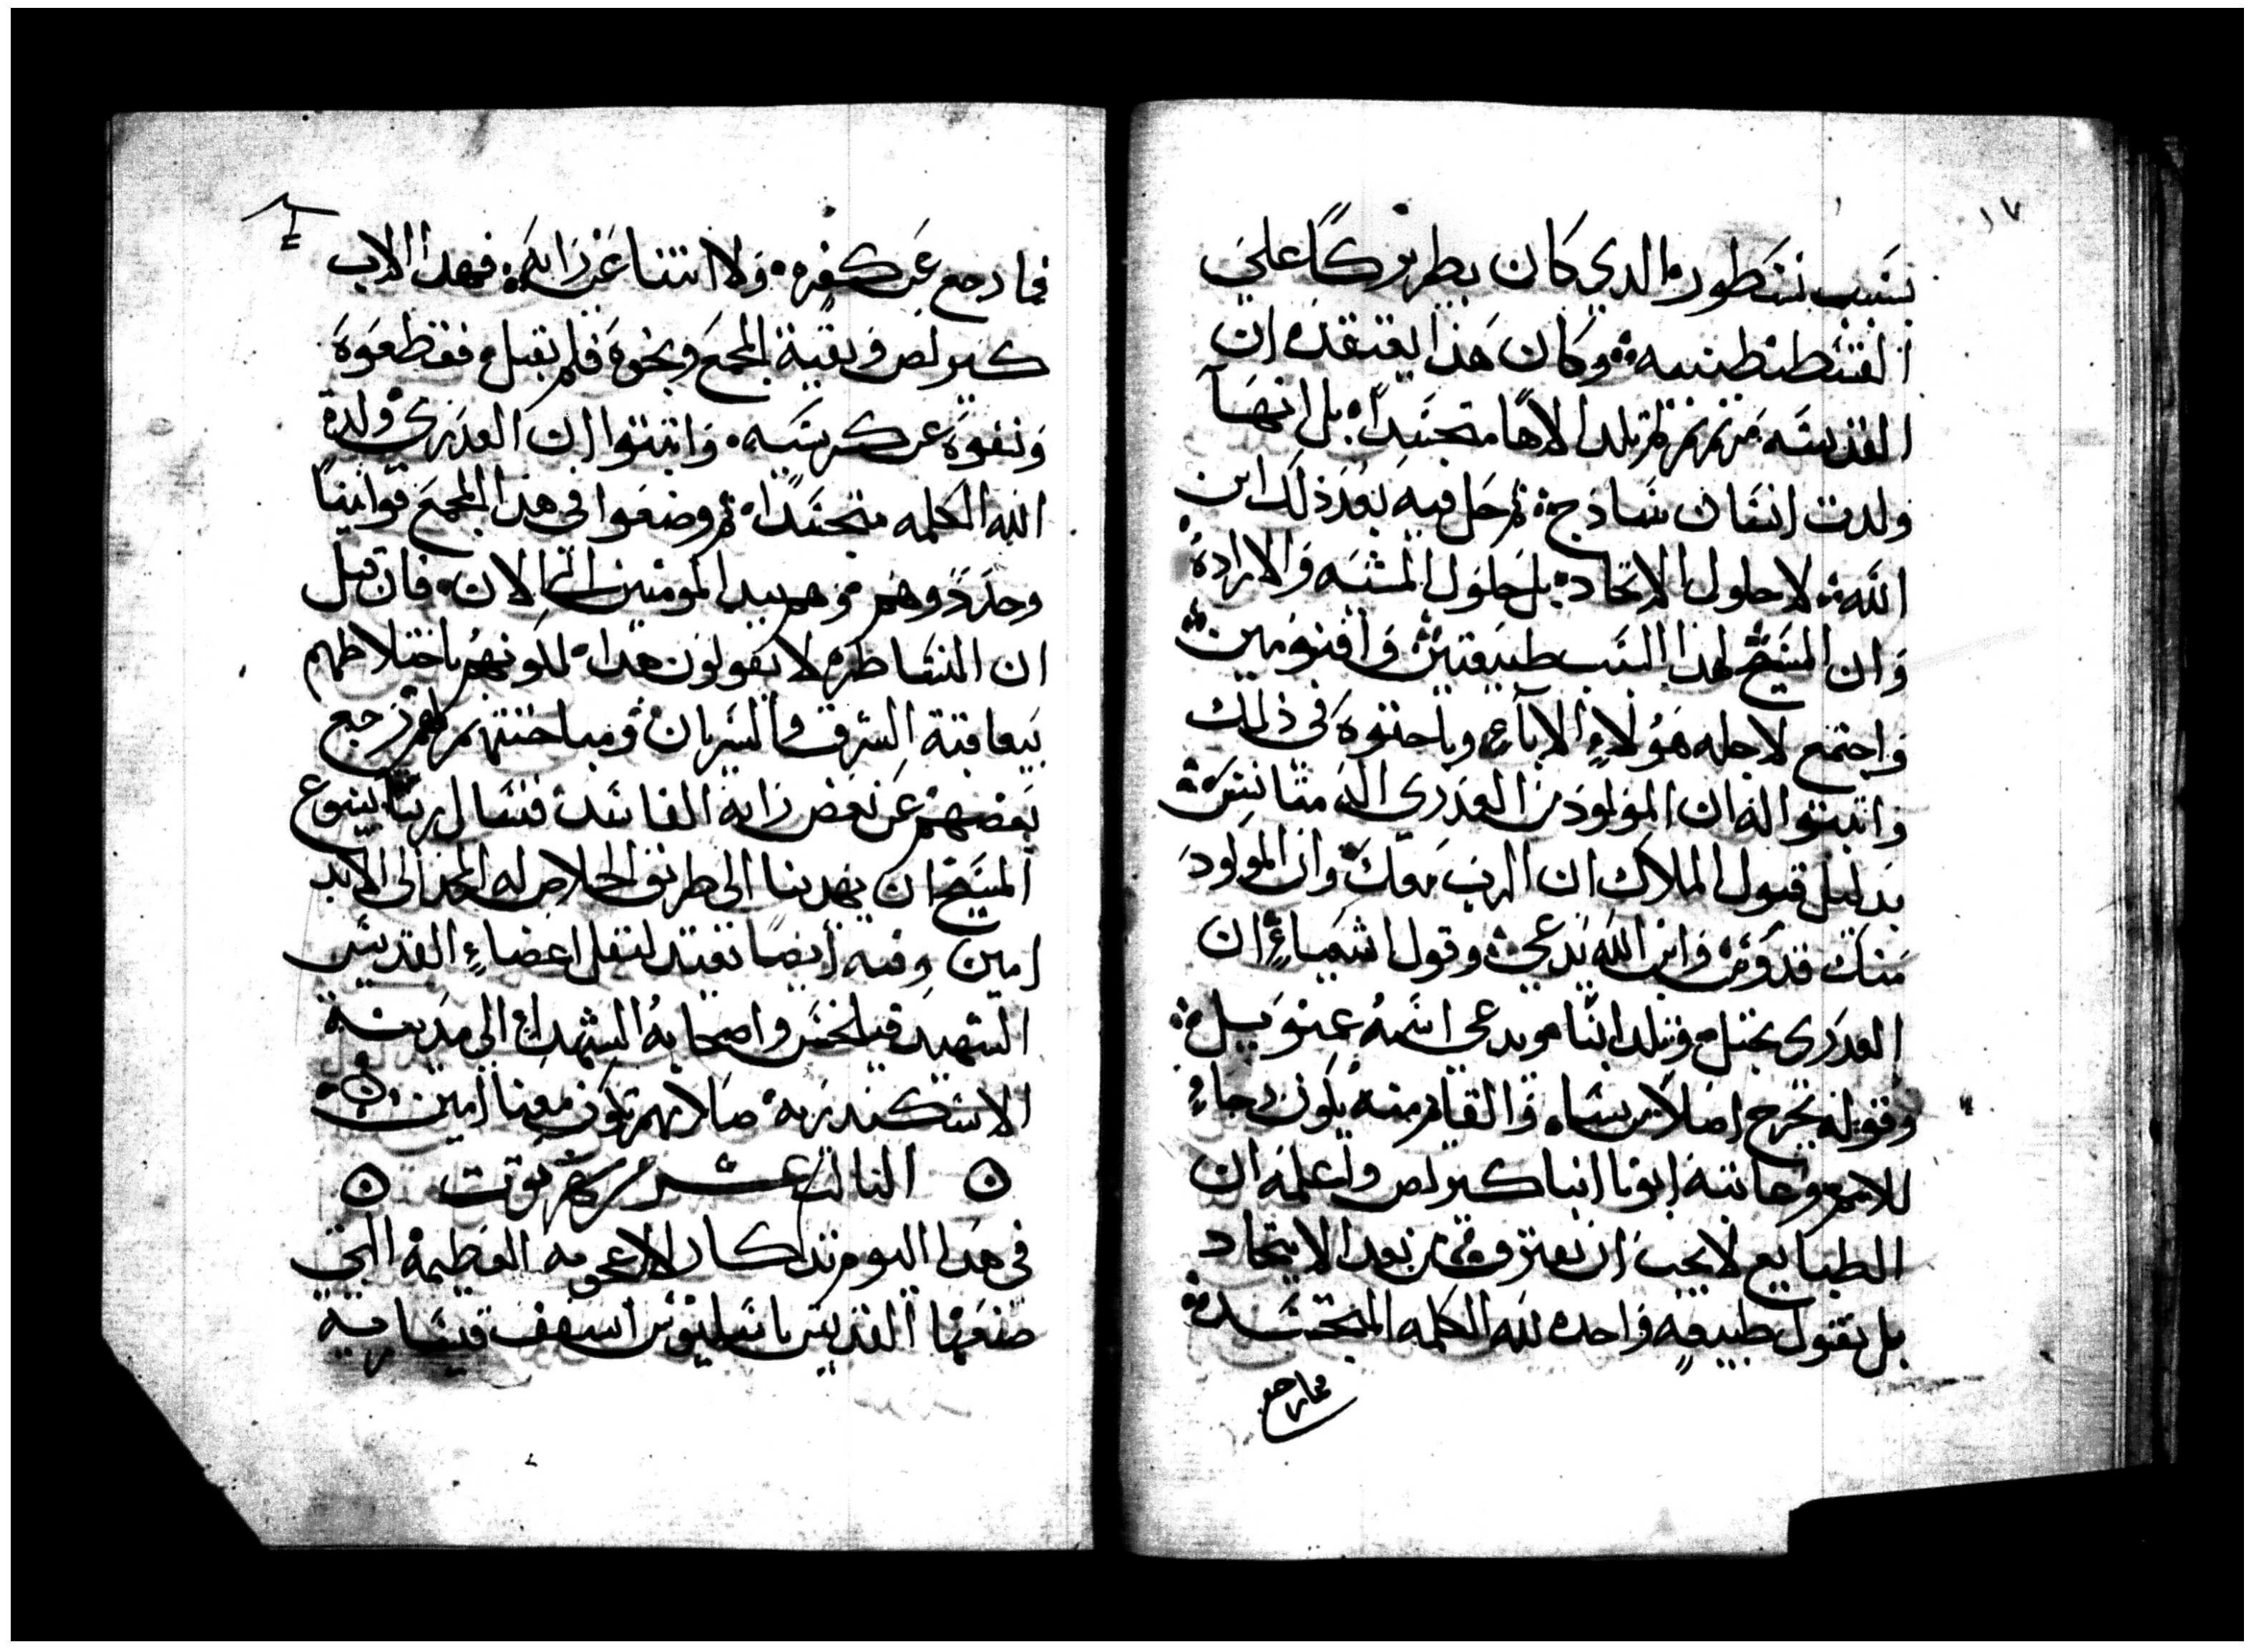 ١٧
بسبب نسطور الدي كان بطريركًا علي
القسطنطينيه وكان هذا يعتقد ان
القديسه مريم لم تلد الاهًا متجسدًا بل انها
ولدت انسان ساذج ثم حل فيه بعد ذلك ابن
الله لا حلول الاتحاد بل حلول المشيه والارادة
وان المسيح لهدا السبب طبيعتين واقنومين
واجتمع لاجله هؤلاء الاباء وباحتوه في ذلك
واتبتوا له ان المولود من العدري اله متانس
بدليل قول الملاك ان الرب معك وان المولود
منك قدوس وابن الله يدعي وقول اشعياء ان
العدرى تحبل وتلد ابنًا ويدعى اسمه عمنوييل
وقوله يخرج اصلاً من يسا والقايم منه يكون رجاء
للامم وحاببه ابونا انبا كيرلص واعلمه ان
الطبايع لا يجب ان تفترق من بعد الاتحاد
بل نقول طبيعه واحده لله الكلمه المتجسده
فما رجع
فما رجع عن كفره ولا انتنا عن رايه فهدا الاب
كيرلص وبقية المجمع وبخوه فلم يقبل فقطعوه
ونفوه عن كرسيه واتبتوا ان العدرى ولدة
الله الكلمه متجسدًا ثم وضعوا في هدا المجمع قوانينًا
وحدود وهم بيد المومنين الى الان فان قيل
ان النساطره لا يقولون هدا لكونهم باختلاطهم
بيعاقبة الشرق والسريان ومباحتتهم لهم رجع
بعضهم عن بعض راية الفاسد فنسال ربنا يسوع
المسيح ان يهدينا الى طريق الخلاص له المجد الى الابد
امين وفيه ايضا تعيد لنقل اعضاء القديس
الشهيد واصحابه الشهداء الى مدينة
الاسكندريه صلاتهم تكون معنا امين
التالت عشر من شهر توت
في هدا اليوم تدكار الاعجوبه العظيمة التي
صنعها القديس باسليوس اسقف قيساريه